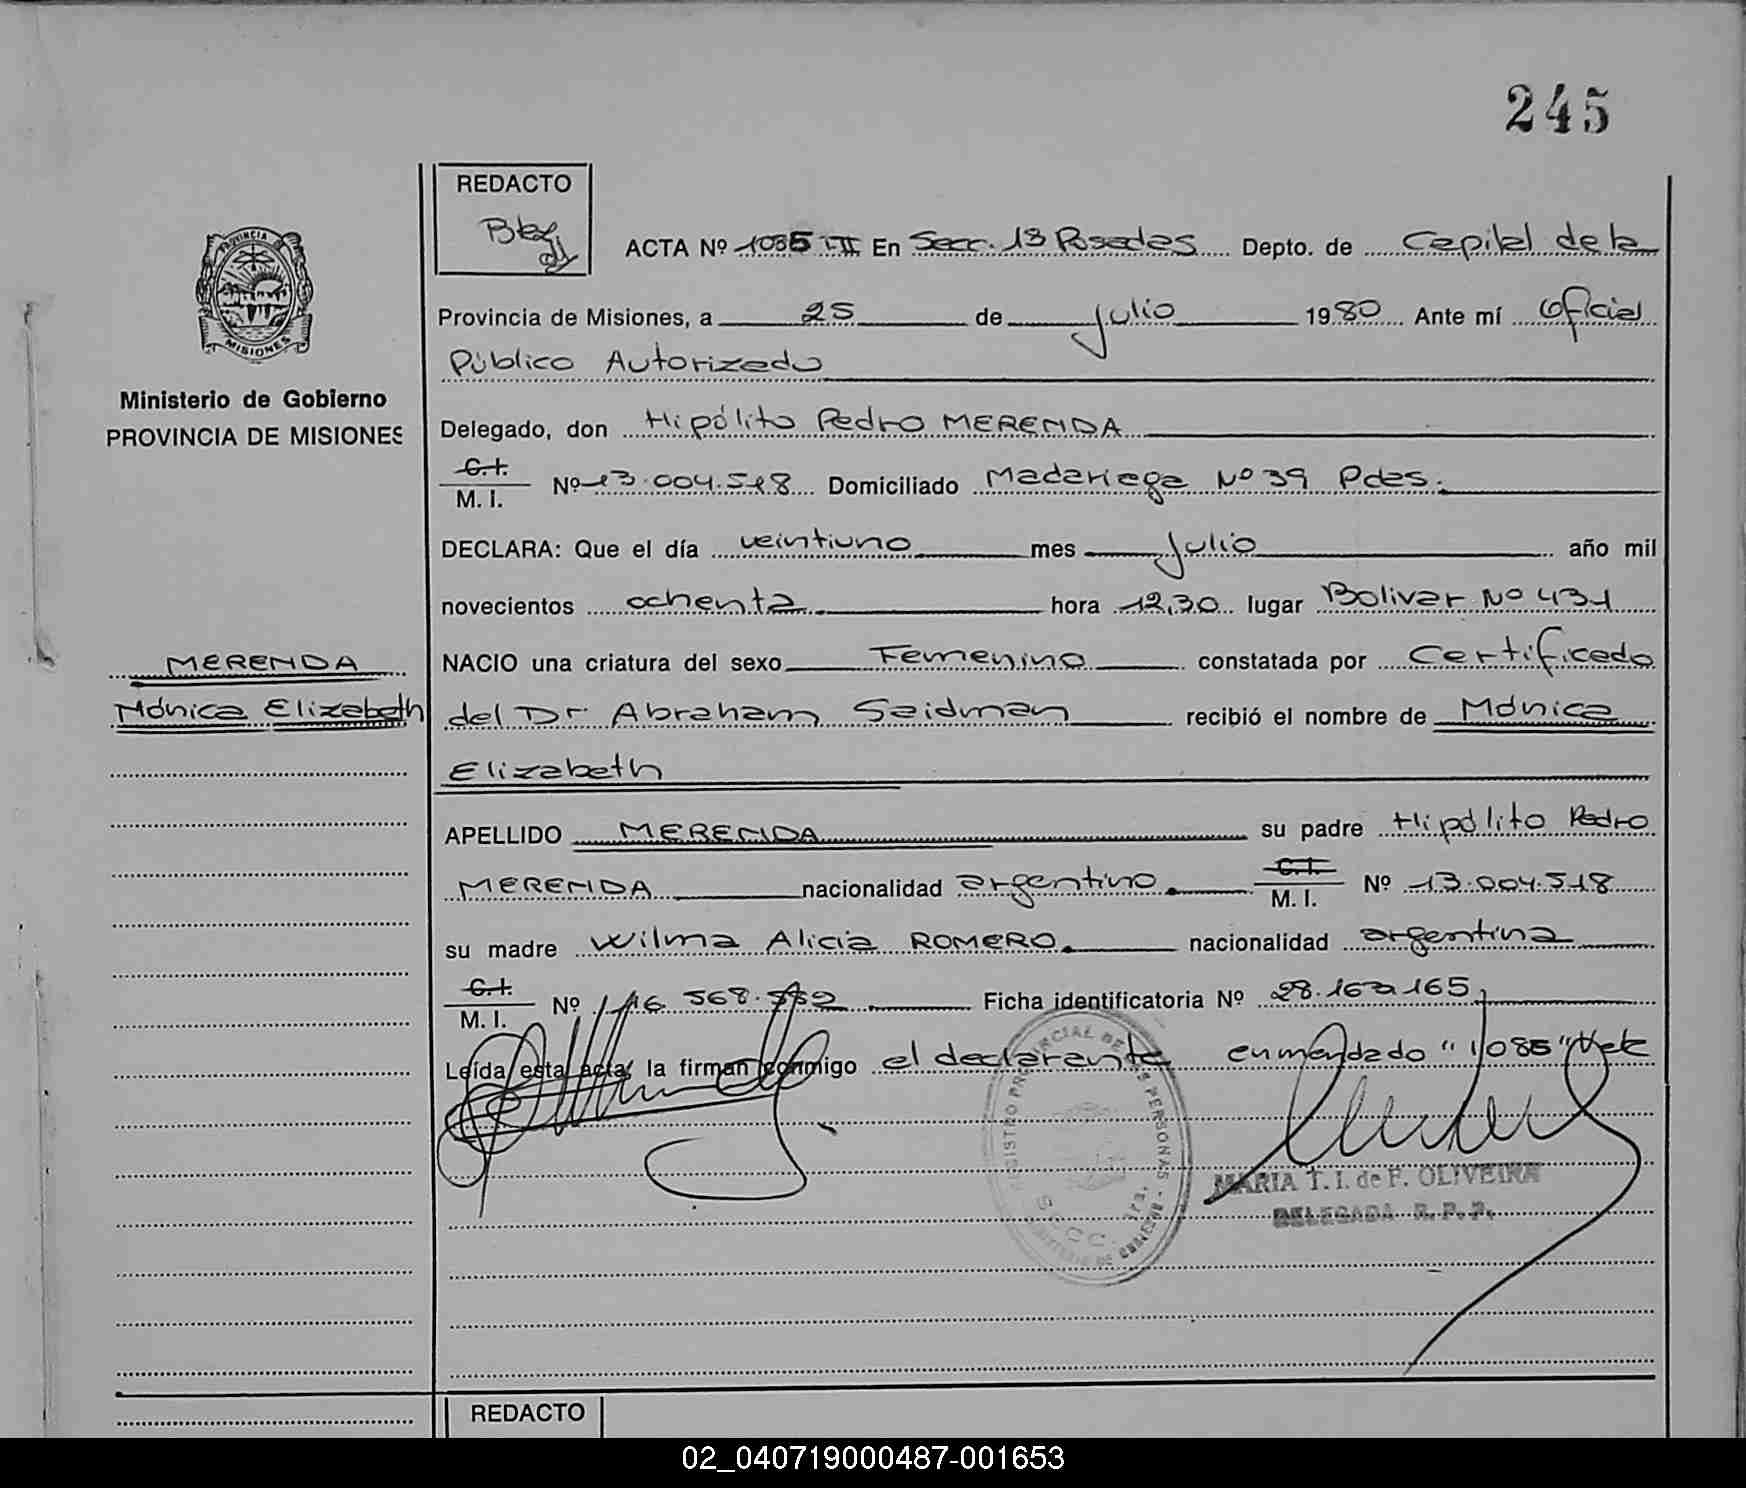 245
REDACTO
ACTA Nº 1085 III En Secc. 13 Posadas Depto. de Capital de la
PROVINCIA
MISIONES
Ministerio de Gobierno
PROVINCIA DE MISIONES
Provincia de Misiones, a 25 de julio 1980 Ante mí Oficial
Público Autorizado
Delegado, don Hipólito Pedro MERENDA
C.I.
M. I. Nº 13.004.518 Domiciliado Madariaga Nº 39 Pdas.
DECLARA: Que el día veintiuno mes julio año mil
novecientos ochenta hora 12,30 lugar Bolivar Nº 431
MERENDA
NACIO una criatura del sexo Femenino constatada por Certificado
Mónica Elizabeth
del Dr Abraham Saidman recibió el nombre de Mónica
Elizabeth
APELLIDO MERENDA su padre Hipólito Pedro
MERENDA nacionalidad argentino. C.I. M. I. Nº 13.004.518
su madre Wilma Alicia ROMERO. nacionalidad argentina
C.I.
M. I. Nº Ficha identificatoria Nº
Leída esta acta, la firman conmigo el declarante enmendado "1085" Vale
REGISTRO PROVINCIAL DE LAS PERSONAS
MARIA T. I. de F. OLIVEIRA
DELEGADA R. P. P.
REDACTO
02_040719000487-001653